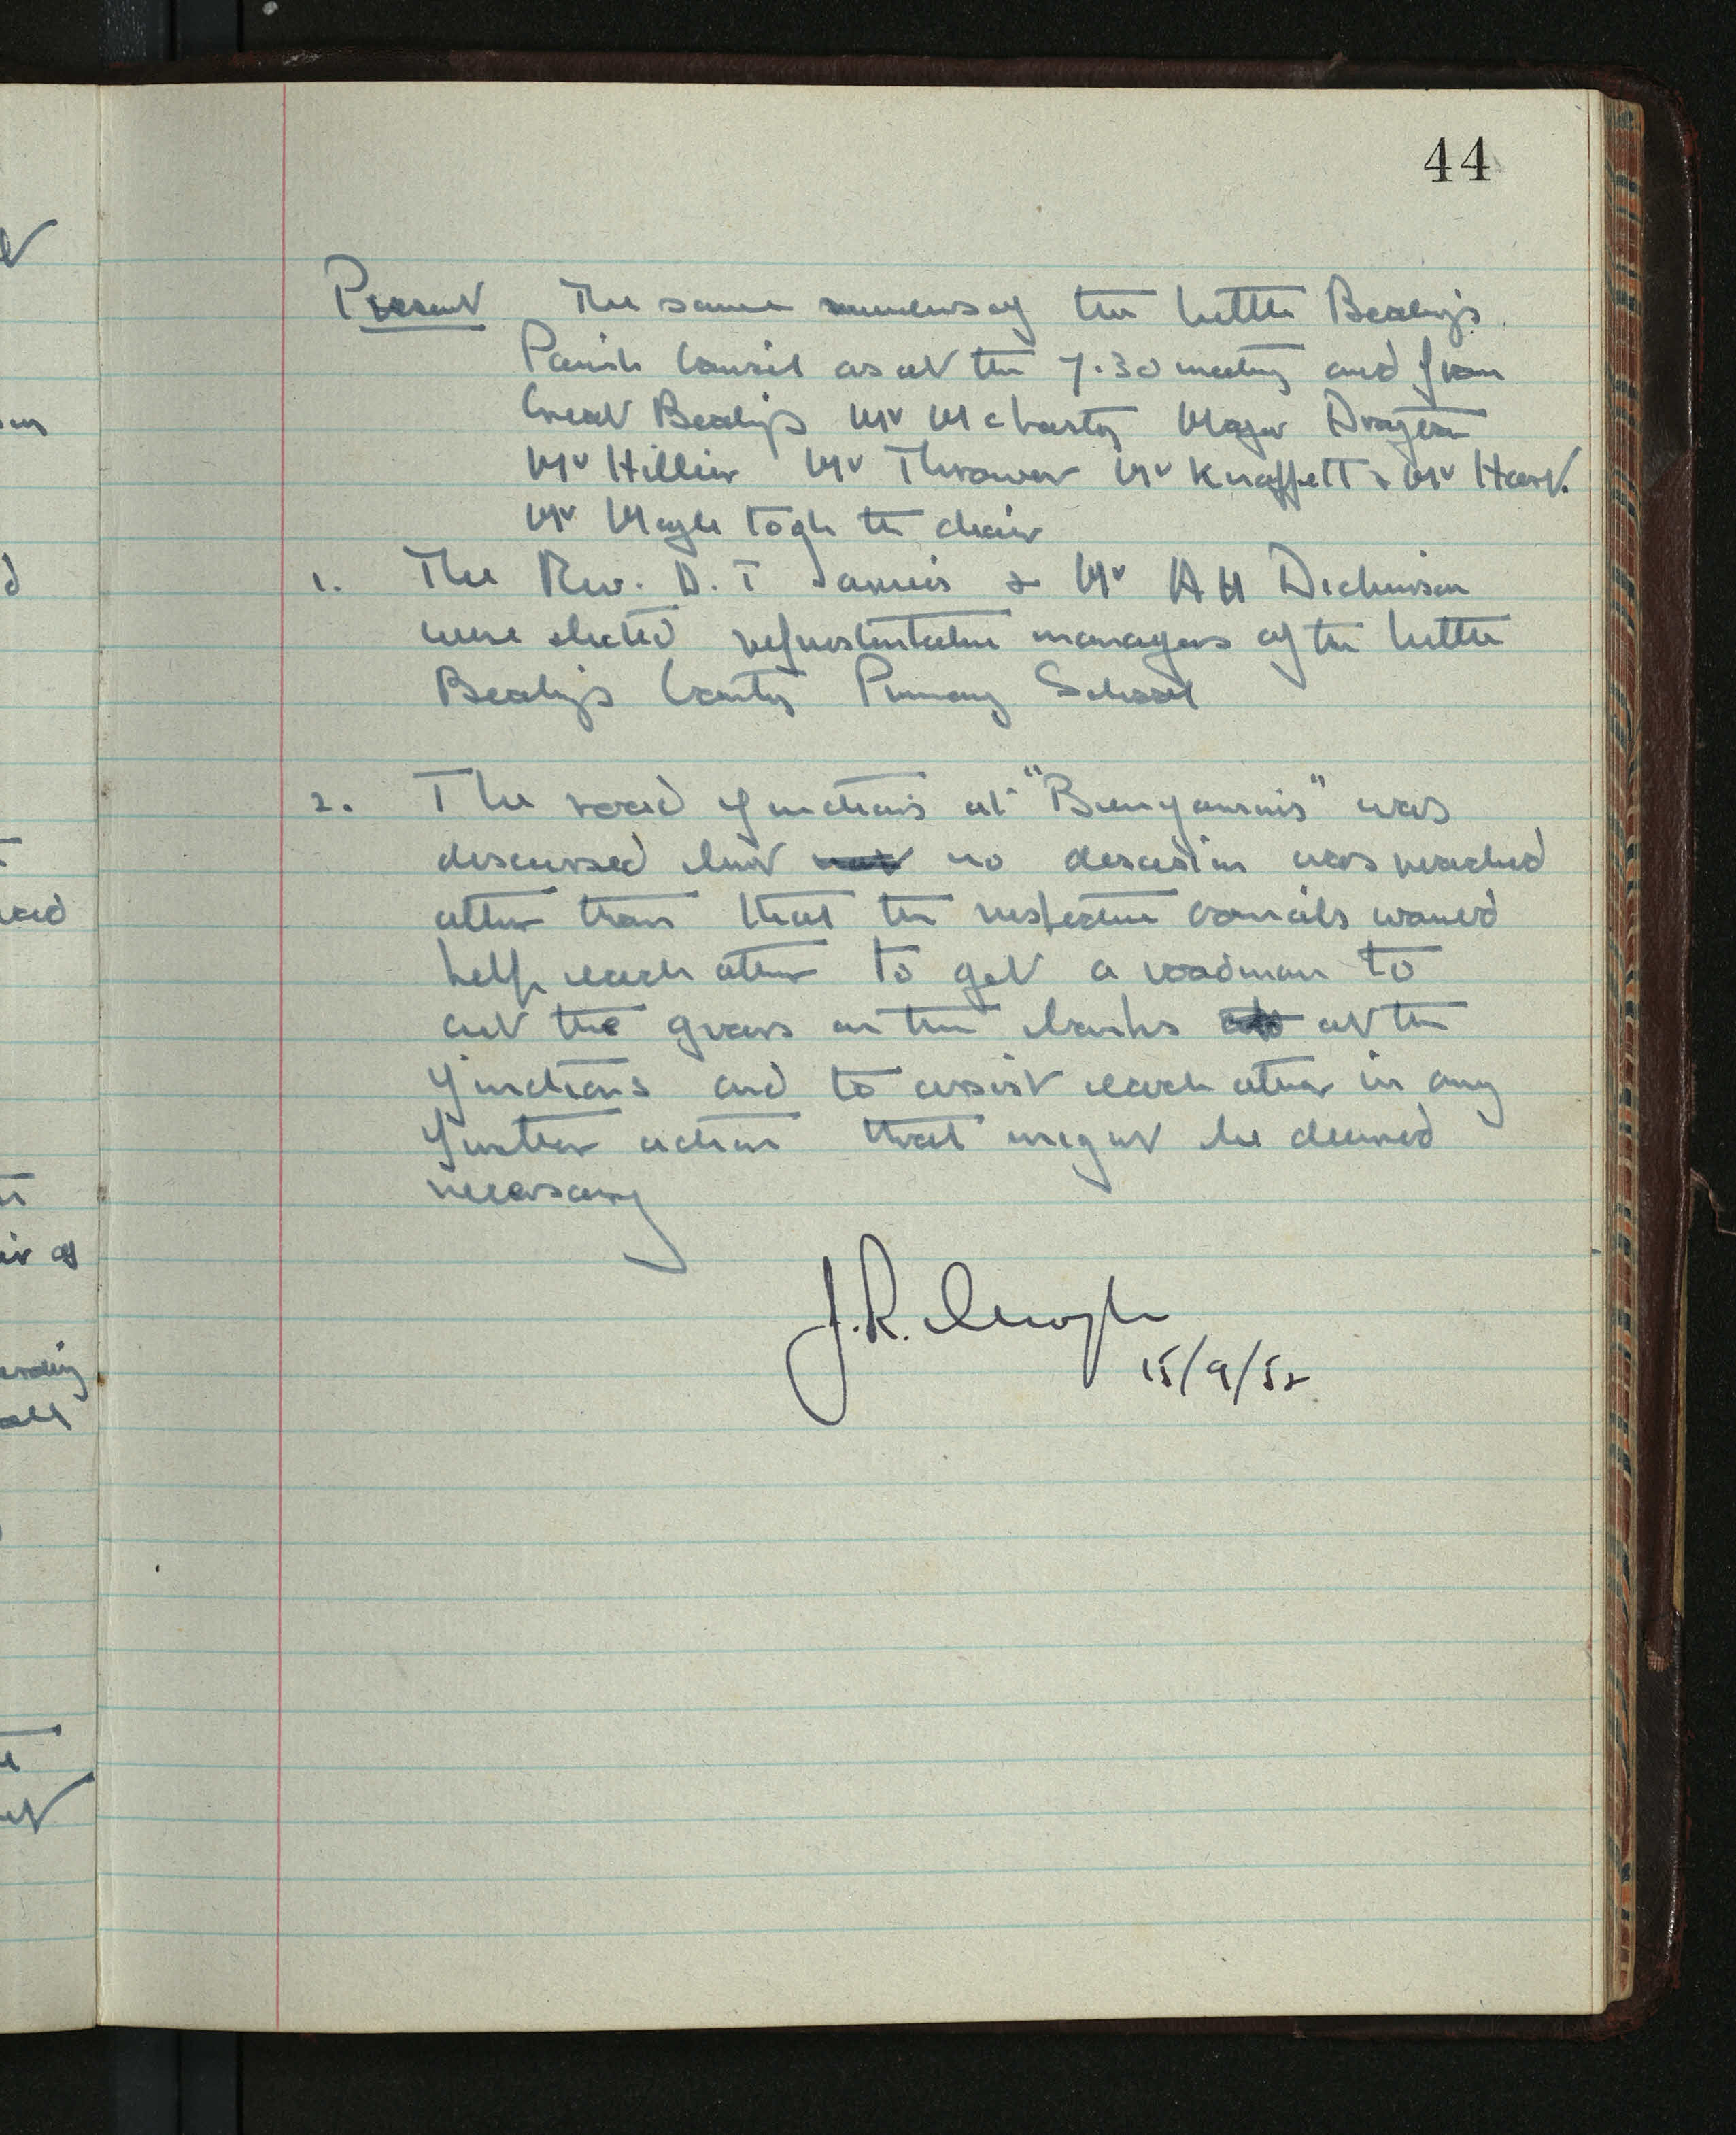 44
Present The same members of the Little Bealings
Parish Council as at the 7.30 meeting and from
Great Bealings Mr McCarthy Major Drayton
Mr Hillier Mr Thrower Mr Knappett & Mr Hart.
Mr Mayle took the chair
1. The Rev. D. T James & Mr A H Dickinson
were elected representative managers of the Little
Bealings County Primary School
2. The road junctions at "Bunyamins" was
discussed but no descision was reached
other than that the respective councils would
help each other to get a roadman to
cut the grass on the banks at the
junctions and to assist each other in any
further action that might be deemed
necessary
J.R.
15/9/52